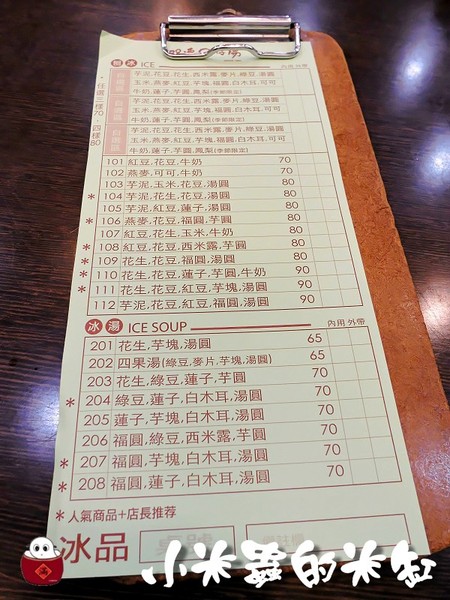 剉冰 ICE 內用 外帶
任選三樣70 四樣80
自選區 芋泥,花豆,花生,西米露,麥片,綠豆,湯圓
玉米,燕麥,紅豆,芋塊,福圓,白木耳,可可
牛奶,蓮子,芋圓,鳳梨(季節限定)
自選區 芋泥,花豆,花生,西米露,麥片,綠豆,湯圓
玉米,燕麥,紅豆,芋塊,福圓,白木耳,可可
牛奶,蓮子,芋圓,鳳梨(季節限定)
自選區 芋泥,花豆,花生,西米露,麥片,綠豆,湯圓
玉米,燕麥,紅豆,芋塊,福圓,白木耳,可可
牛奶,蓮子,芋圓,鳳梨(季節限定)
101 紅豆,花豆,牛奶 70
102 燕麥,可可,牛奶 70
103 芋泥,玉米,花豆,湯圓 80
104 芋泥,花生,燕麥,湯圓 80
105 芋泥,紅豆,蓮子,湯圓 80
* 106 燕麥,花豆,福圓,芋圓 80
107 紅豆,花生,玉米,牛奶 80
* 108 紅豆,花豆,西米露,芋圓 80
* 109 花生,花豆,福圓,湯圓 80
* 110 花生,花豆,蓮子,芋圓,牛奶 90
* 111 花生,紅豆,芋塊,湯圓,牛奶 90
112 芋泥,花豆,紅豆,福圓,湯圓 90
冰湯 ICE SOUP 內用 外帶
201 花生,芋塊,湯圓 65
202 四果湯(綠豆,麥片,芋塊,湯圓) 65
203 花生,綠豆,蓮子,芋圓 70
* 204 綠豆,蓮子,白木耳,湯圓 70
205 蓮子,芋塊,白木耳,湯圓 70
206 福圓,綠豆,西米露,芋圓 70
* 207 福圓,芋塊,白木耳,湯圓 70
* 208 福圓,蓮子,白木耳,湯圓 70
* 人氣商品+店長推荐
冰品 桌號
小米蟲的米缸